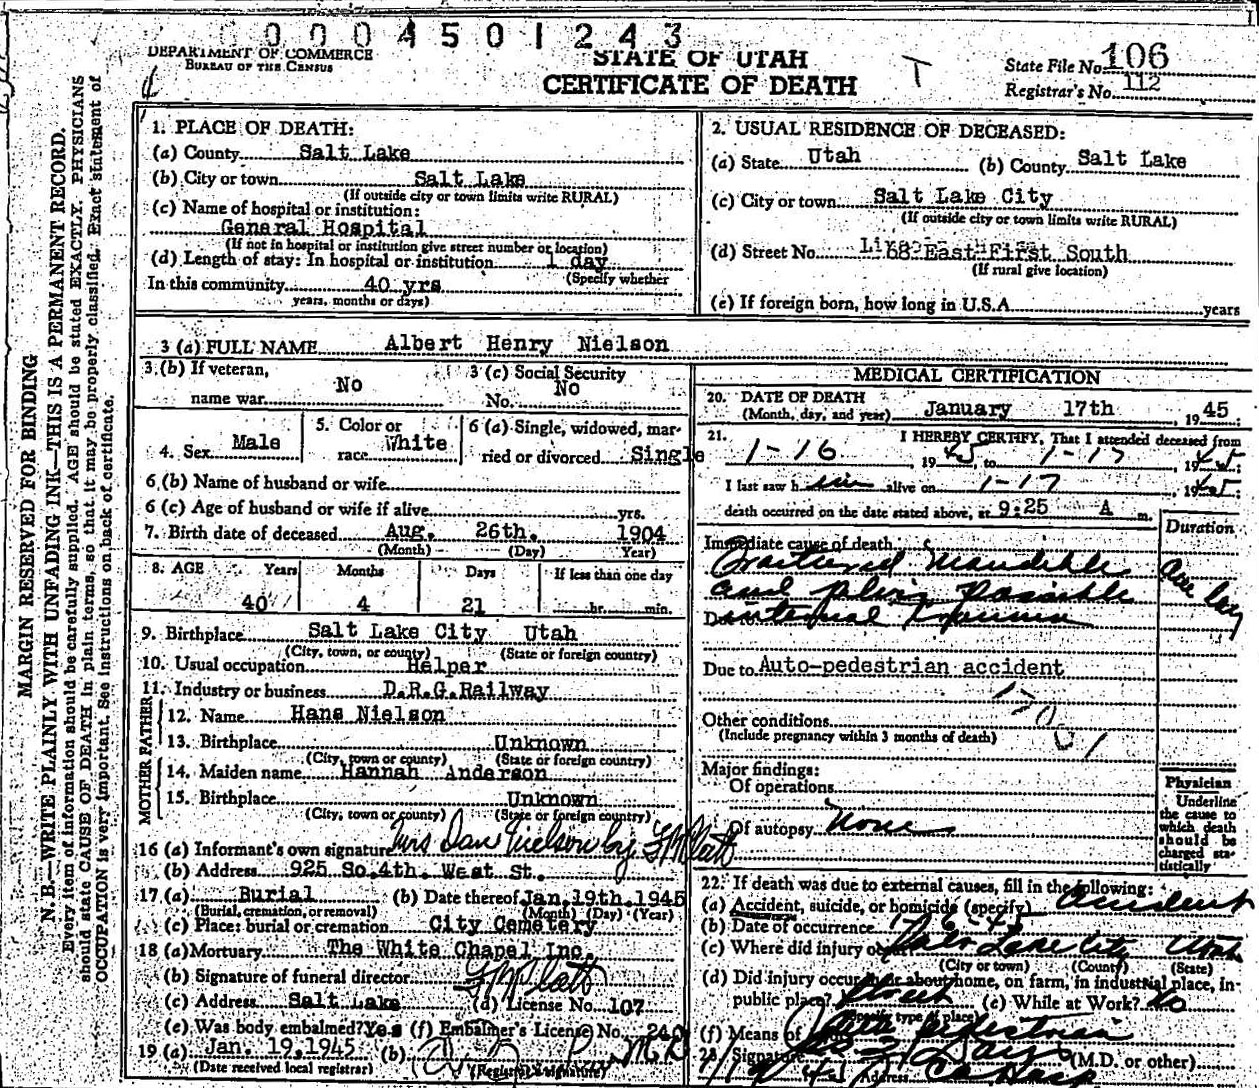 0 0 0 4 5 0 1 2 4 3
DEPARTMENT OF COMMERCE
BUREAU OF THE CENSUS
STATE OF UTAH
CERTIFICATE OF DEATH
T
State File No. 106
Registrar's No. 112
MARGIN RESERVED FOR BINDING
N. B.—WRITE PLAINLY WITH UNFADING INK—THIS IS A PERMANENT RECORD.
Every item of information should be carefully supplied. AGE should be stated EXACTLY. PHYSICIANS
should state CAUSE OF DEATH in plain terms, so that it may be properly classified. Exact statement of
OCCUPATION is very important. See instructions on back of certificate.
1. PLACE OF DEATH:
(a) County Salt Lake
(b) City or town Salt Lake
(If outside city or town limits write RURAL)
(c) Name of hospital or institution:
General Hospital
(If not in hospital or institution give street number or location)
(d) Length of stay: In hospital or institution 1 day
(Specify whether
In this community 40 yrs
years, months or days)
2. USUAL RESIDENCE OF DECEASED:
(a) State Utah (b) County Salt Lake
(c) City or town Salt Lake City
(If outside city or town limits write RURAL)
(d) Street No. East First South
(If rural give location)
(e) If foreign born, how long in U.S.A. years
3 (a) FULL NAME Albert Henry Nielson
3.(b) If veteran,
name war No
3 (c) Social Security
No. No
4. Sex Male
5. Color or
race White
6 (a) Single, widowed, mar-
ried or divorced Single
6.(b) Name of husband or wife
6 (c) Age of husband or wife if alive yrs.
7. Birth date of deceased Aug. 26th. 1904
(Month) (Day) Year)
8. AGE Years Months Days If less than one day
40 4 21 hr. min.
9. Birthplace Salt Lake City Utah
(City, town, or county) (State or foreign country)
10. Usual occupation Helper
11. Industry or business D.R.G.Railway
FATHER
12. Name Hans Nielson
13. Birthplace Unknown
(City, town or county) (State or foreign country)
MOTHER
14. Maiden name Hannah Anderson
15. Birthplace Unknown
(City, town or county) (State or foreign country)
16 (a) Informant's own signature Mrs Dan Nielson by
(b) Address 925 So.4th. West St.
17 (a) Burial (b) Date thereof Jan.19th.1945
(Burial, cremation, or removal) (Month) (Day) (Year)
(c) Place: burial or cremation City Cemetery
18 (a) Mortuary The White Chapel Inc.
(b) Signature of funeral director
(c) Address Salt Lake (d) License No. 107
(e) Was body embalmed? Yes (f) Embalmer's License No. 240
19 (a) Jan. 19,1945 (b)
(Date received local registrar) (Registrar's signature)
MEDICAL CERTIFICATION
20. DATE OF DEATH
(Month, day, and year) January 17th , 1945:
21. I HEREBY CERTIFY, That I attended deceased from
1-16 , 1945, to 1-17 , 1945:
I last saw him alive on 1-17 , 1945:
death occurred on the date stated above, at 9:25 A m.
Duration
Immediate cause of death
Fractured Mandible
and pelvis possible
internal
One day
Due to Auto-pedestrian accident
Other conditions
(Include pregnancy within 3 months of death)
Major findings:
Of operations
Of autopsy None
Physician
Underline
the cause to
which death
should be
charged sta-
tistically
22. If death was due to external causes, fill in the following:
(a) Accident, suicide, or homicide (specify) Accident
(b) Date of occurrence 1-16-45
(c) Where did injury occur? Salt Lake City Utah
(City or town) (County) (State)
(d) Did injury occur in or about home, on farm, in industrial place, in
public place? Street (e) While at Work? No
(Specify type of place)
(f) Means of Auto pedestrian
23. Signature (M.D. or other)
Address